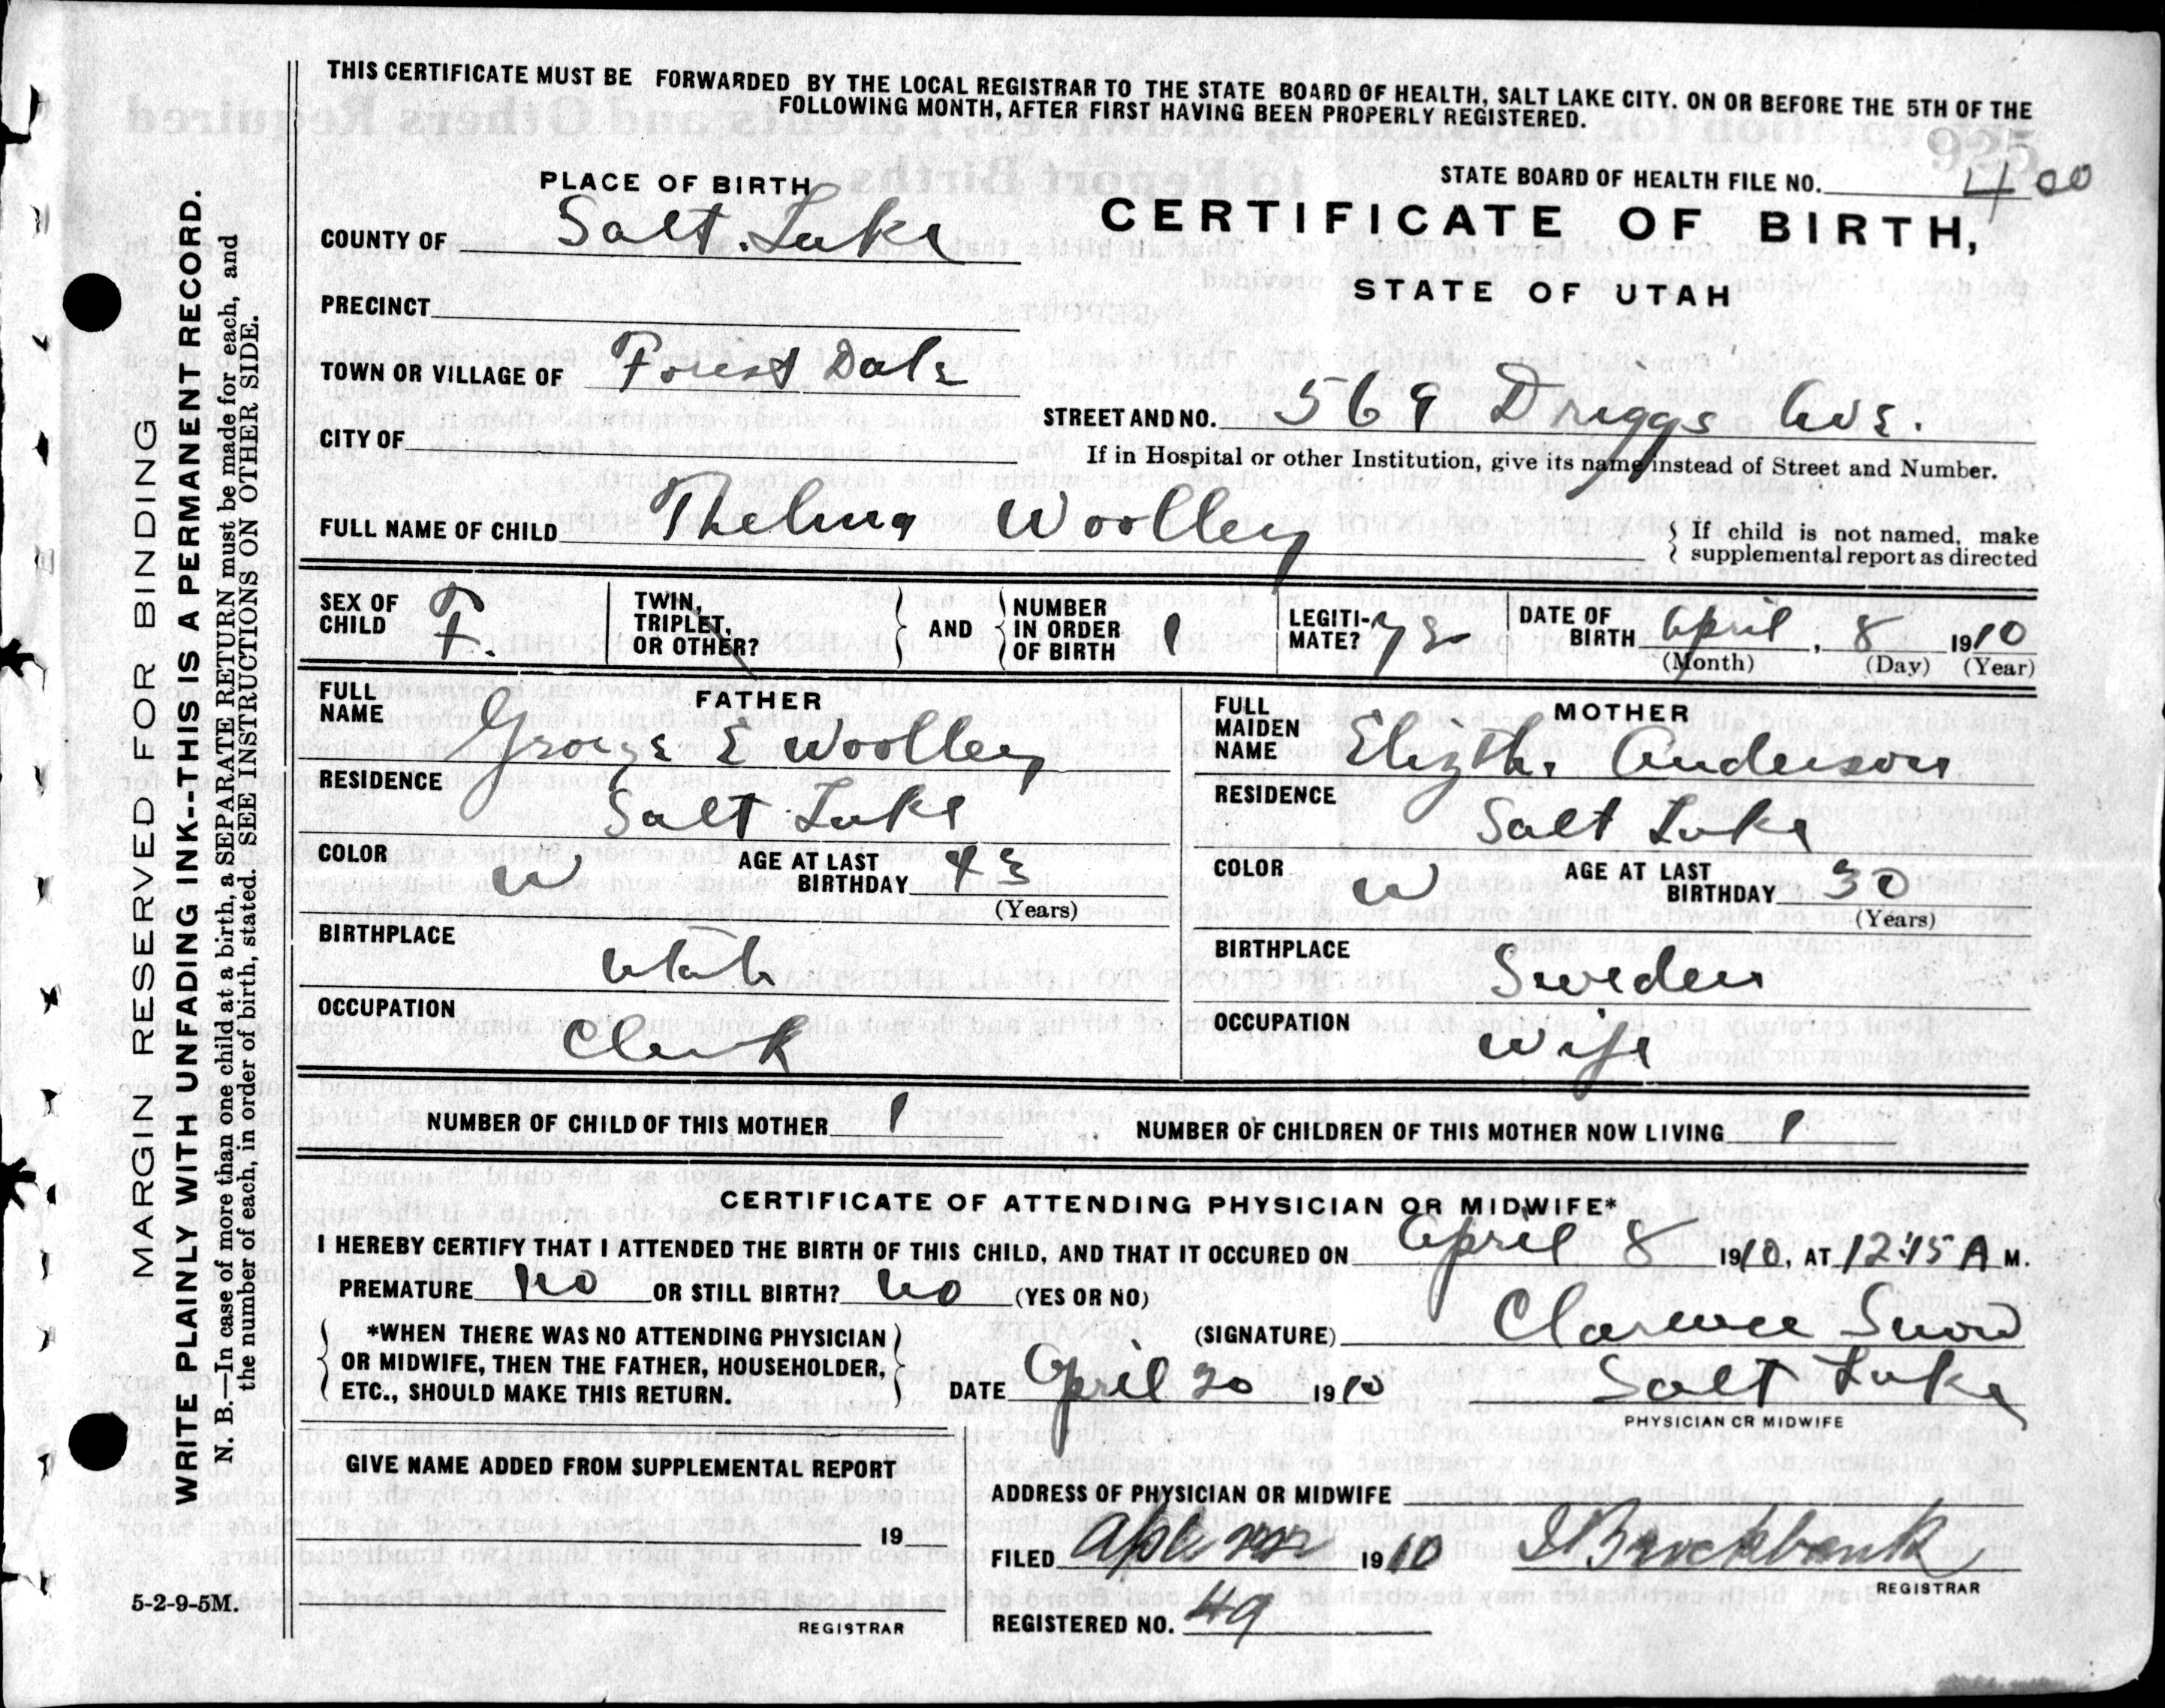 THIS CERTIFICATE MUST BE FORWARDED BY THE LOCAL REGISTRAR TO THE STATE BOARD OF HEALTH, SALT LAKE CITY. ON OR BEFORE THE 5TH OF THE
FOLLOWING MONTH, AFTER FIRST HAVING BEEN PROPERLY REGISTERED.
925
STATE BOARD OF HEALTH FILE NO. 400
PLACE OF BIRTH
CERTIFICATE OF BIRTH,
STATE OF UTAH
COUNTY OF Salt Lake
PRECINCT
TOWN OR VILLAGE OF Forest Dale
STREET AND NO. 569 Driggs Ave.
CITY OF
If in Hospital or other Institution, give its name instead of Street and Number.
FULL NAME OF CHILD Thelma Woolley
If child is not named, make
supplemental report as directed
SEX OF CHILD F.
TWIN, TRIPLET, OR OTHER?
AND
NUMBER IN ORDER OF BIRTH 1
LEGITI-MATE? yes
DATE OF BIRTH April, 8 1910
(Month) (Day) (Year)
FATHER
FULL NAME George E Woolley
RESIDENCE
Salt Lake
COLOR W AGE AT LAST BIRTHDAY 43
(Years)
BIRTHPLACE
Utah
OCCUPATION
Clerk
MOTHER
FULL MAIDEN NAME Elizth. Anderson
RESIDENCE
Salt Lake
COLOR W AGE AT LAST BIRTHDAY 30
(Years)
BIRTHPLACE
Sweden
OCCUPATION
Wife
NUMBER OF CHILD OF THIS MOTHER 1
NUMBER OF CHILDREN OF THIS MOTHER NOW LIVING 1
CERTIFICATE OF ATTENDING PHYSICIAN OR MIDWIFE*
I HEREBY CERTIFY THAT I ATTENDED THE BIRTH OF THIS CHILD, AND THAT IT OCCURED ON April 8 1910, AT 12:15 A M.
PREMATURE No OR STILL BIRTH? No (YES OR NO)
*WHEN THERE WAS NO ATTENDING PHYSICIAN
OR MIDWIFE, THEN THE FATHER, HOUSEHOLDER,
ETC., SHOULD MAKE THIS RETURN.
(SIGNATURE) Clarence Snow
DATE April 20 1910 Salt Lake
PHYSICIAN OR MIDWIFE
GIVE NAME ADDED FROM SUPPLEMENTAL REPORT
19
REGISTRAR
ADDRESS OF PHYSICIAN OR MIDWIFE
FILED 1910 Brockbank
REGISTRAR
REGISTERED NO. 49
5-2-9-5M.
MARGIN RESERVED FOR BINDING
WRITE PLAINLY WITH UNFADING INK--THIS IS A PERMANENT RECORD.
N. B.—In case of more than one child at a birth, a SEPARATE RETURN must be made for each, and
the number of each, in order of birth, stated. SEE INSTRUCTIONS ON OTHER SIDE.